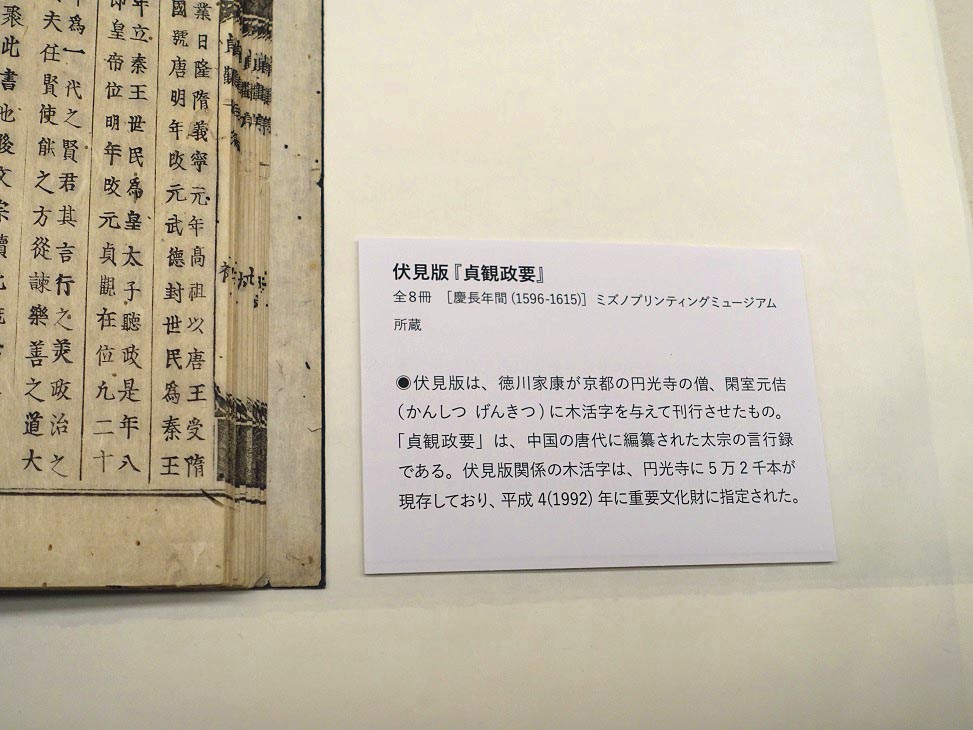 業日隆隋義寧元年高祖以唐王受隋
國號唐明年改元武德封世民爲秦王
年立秦王世民爲皇太子聽政是年八
卽皇帝位明年改元貞觀在位九二十
年爲一代之賢君其言行之美政治之
夫任賢使能之方從諫樂善之道大
聚此書也
伏見版『貞観政要』
全8冊 ［慶長年間 (1596-1615)］ ミズノプリンティングミュージアム
所蔵
◉伏見版は、徳川家康が京都の円光寺の僧、閑室元佶
（かんしつ げんきつ）に木活字を与えて刊行させたもの。
「貞観政要」は、中国の唐代に編纂された太宗の言行録
である。伏見版関係の木活字は、円光寺に5万2千本が
現存しており、平成4(1992) 年に重要文化財に指定された。